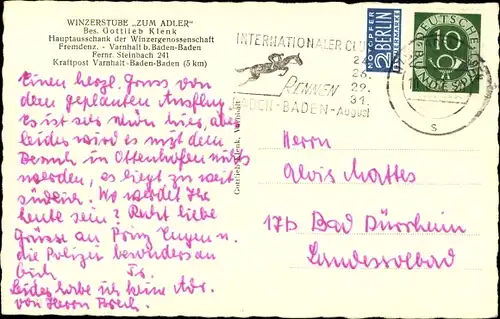 WINZERSTUBE „ZUM ADLER"
Bes. Gottlieb Klenk
Hauptausschank der Winzergenossenschaft
Fremdenz. - Varnhalt b. Baden-Baden
Fernr. Steinbach 241
Kraftpost Varnhalt-Baden-Baden (5 km)
INTERNATIONALER CL
RENNEN
26.
29.
31.
DEN-BADEN-August
NOTOPFER
2 BERLIN
STEUERMARKE
DEUTSCHE
10
Einen herzl. Gruss von
dem geplanten Ausflug.
Es ist sehr schön hier, aber
leider wird es mit dem
Besuch in Ottenhöfen nichts
werden, es liegt zu weit
südlich. Wo werdet Ihr
heute sein? Recht liebe
Grüsse an Prinz Eugen u.
die Polizei besonders an
Leider habe ich keine Adr.
von Herrn
Gottlieb Klenk, Varnhalt
Herrn
Alois Mattes
17b Bad Dürrheim
Landessolbad